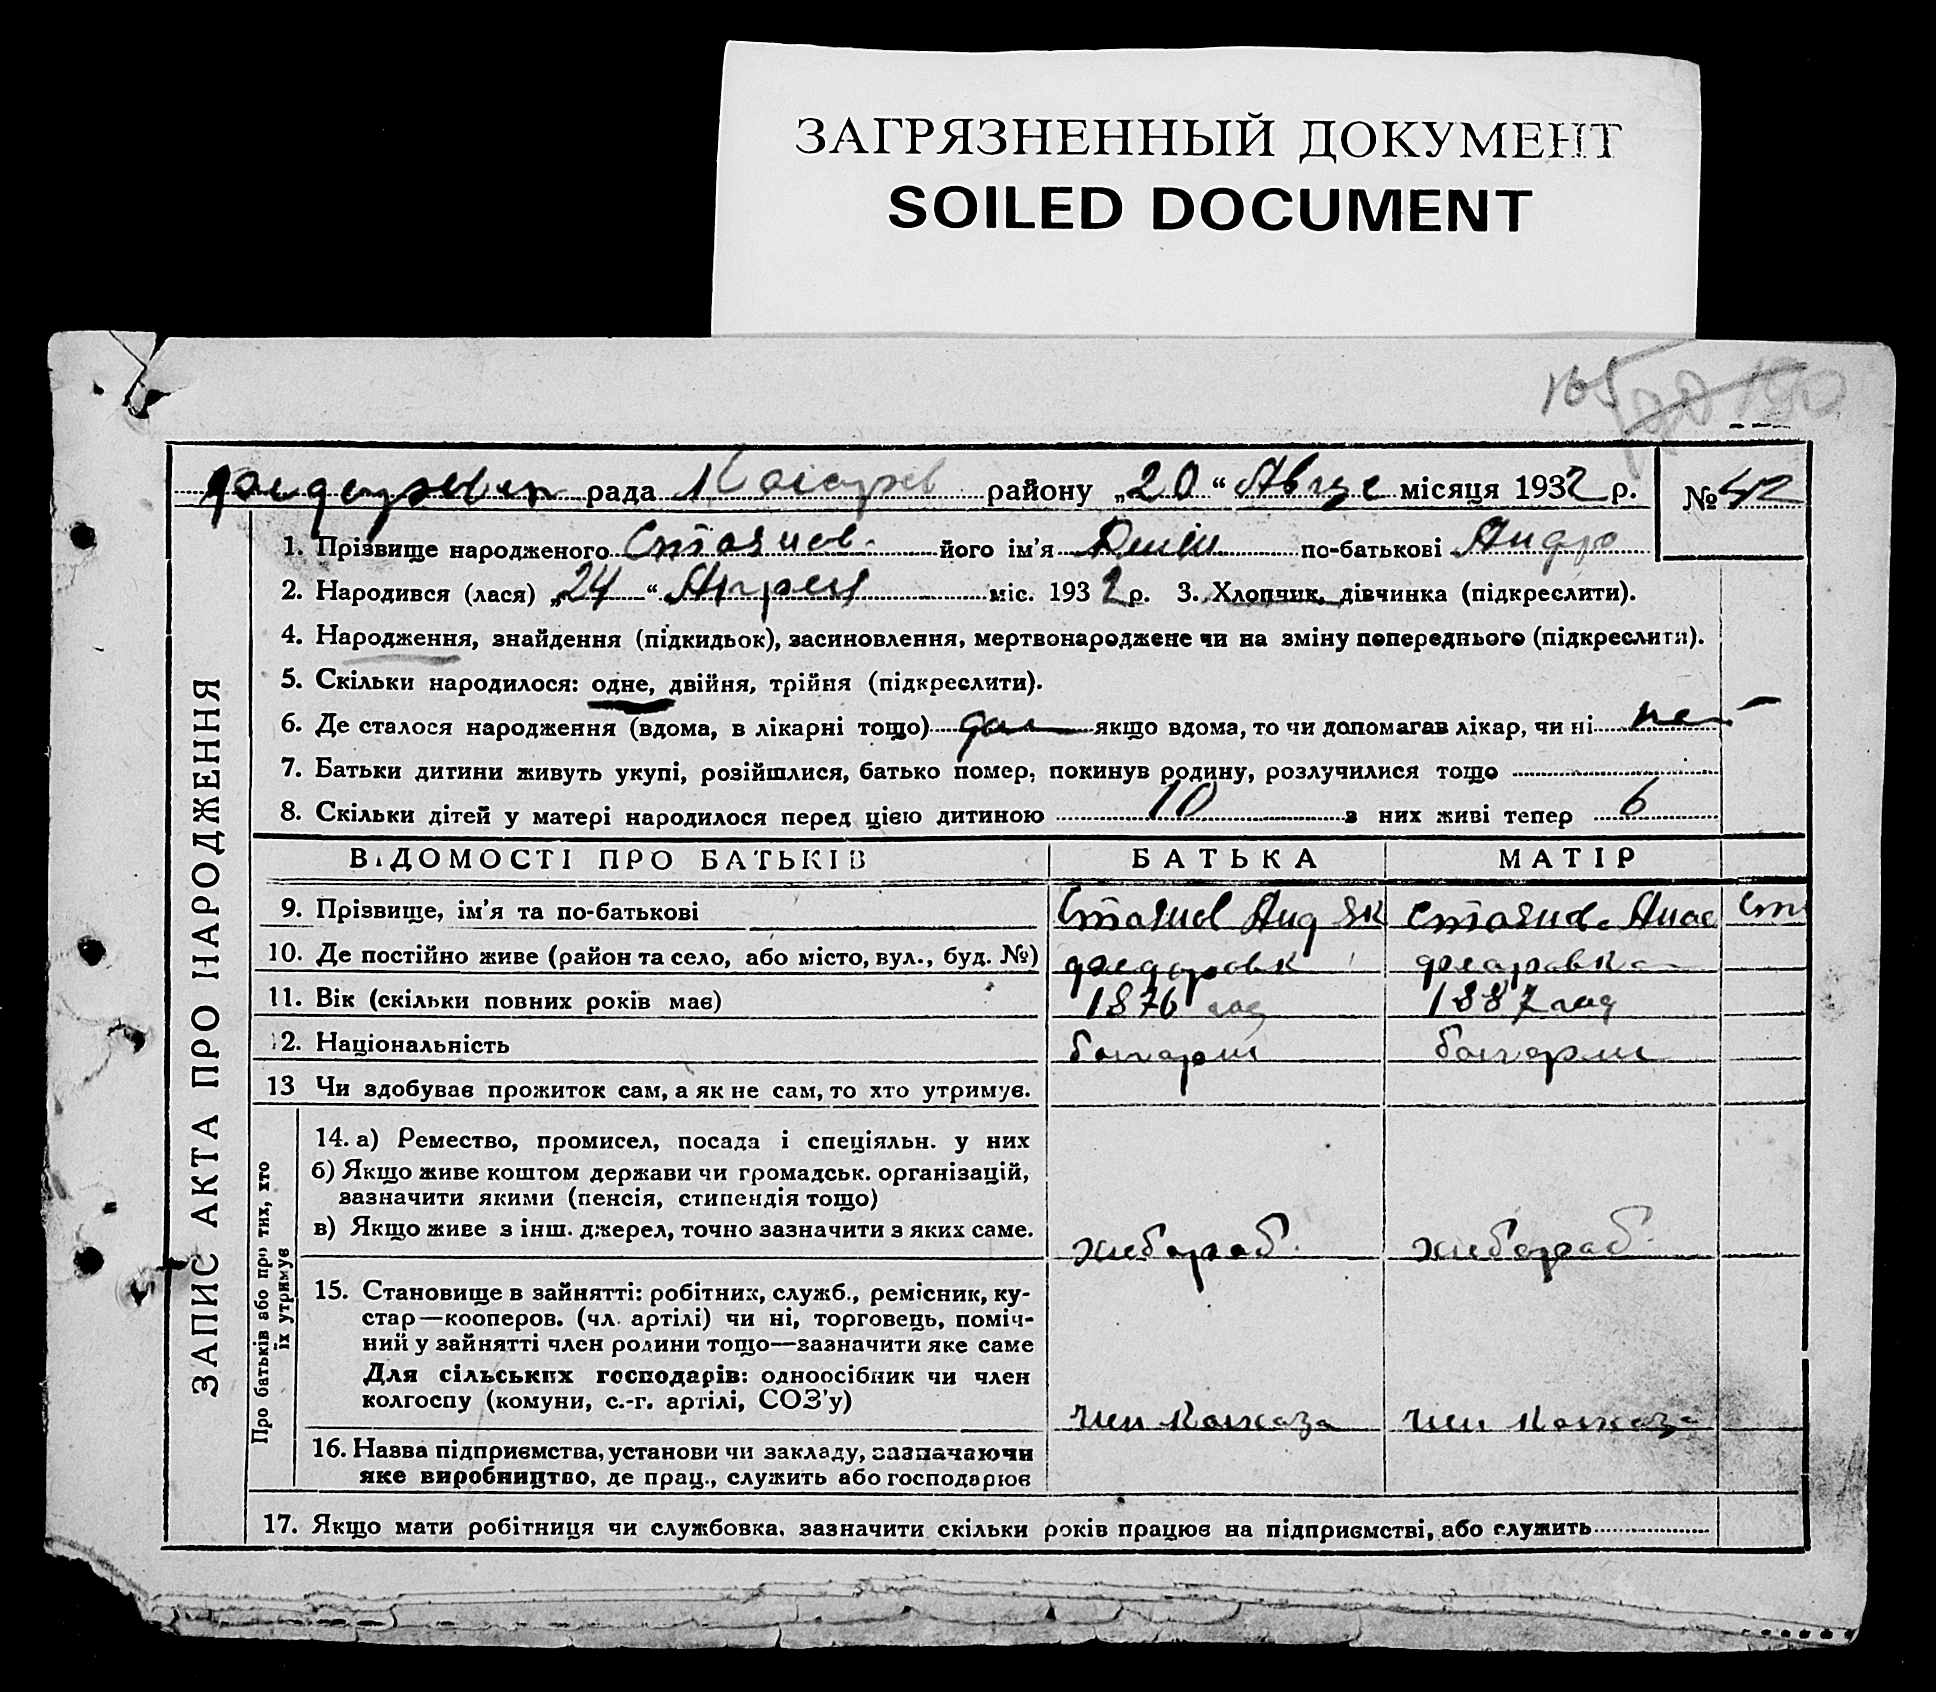 ЗАГРЯЗНЕННЫЙ ДОКУМЕНТ
SOILED DOCUMENT
165
рада район­у „20“ Авгус місяця 1932 р. №42
1. Прізвище народженого Стоянов його ім'я по-батькові Андро
2. Народився (лася) „24“ Апреля міс. 1932 р. 3. Хлопчик, дівчинка (підкреслити).
4. Народження, знайдення (підкидьок), засиновлення, мертвонароджене чи на зміну попереднього (підкреслити).
5. Скільки народилося: одне, двійня, трійня (підкреслити).
6. Де сталося народження (вдома, в лікарні тощо) дома якщо вдома, то чи допомагав лікар, чи ні нет
7. Батьки дитини живуть укупі, розійшлися, батько помер, покинув родину, розлучилися тощо
8. Скільки дітей у матері народилося перед цією дитиною 10 з них живі тепер 6
ВІДОМОСТІ ПРО БАТЬКІВ БАТЬКА МАТІР
9. Прізвище, ім'я та по-батькові Стоянов Анд Як Стоянов Анас Сто
10. Де постійно живе (район та село, або місто, вул., буд. №) Федоровк Федоровка
11. Вік (скільки повних років має) 1876 год 1887 год
12. Національність болгарин болгарин
13 Чи здобуває прожиток сам, а як не сам, то хто утримує.
14. а) Ремество, промисел, посада і спеціяльн. у них
б) Якщо живе коштом держави чи громадськ. організацій,
зазначити якими (пенсія, стипендія тощо)
в) Якщо живе з інш. джерел, точно зазначити з яких саме. хлебороб. хлебороб.
15. Становище в зайнятті: робітник, служб., ремісник, ку-
стар—кооперов. (чл. артілі) чи ні, торговець, поміч-
ний у зайнятті член родини тощо—зазначити яке саме
Для сільських господарів: одноосібник чи член
колгоспу (комуни, с.-г. артілі, СОЗ'у) член колхоза член колхоза
16. Назва підприємства, установи чи закладу, зазначаючи
яке виробництво, де прац., служить або господарює
17. Якщо мати робітниця чи службовка, зазначити скільки років працює на підприємстві, або служить
ЗАПИС АКТА ПРО НАРОДЖЕННЯ
Про батьків або про тих, хто
їх утримує